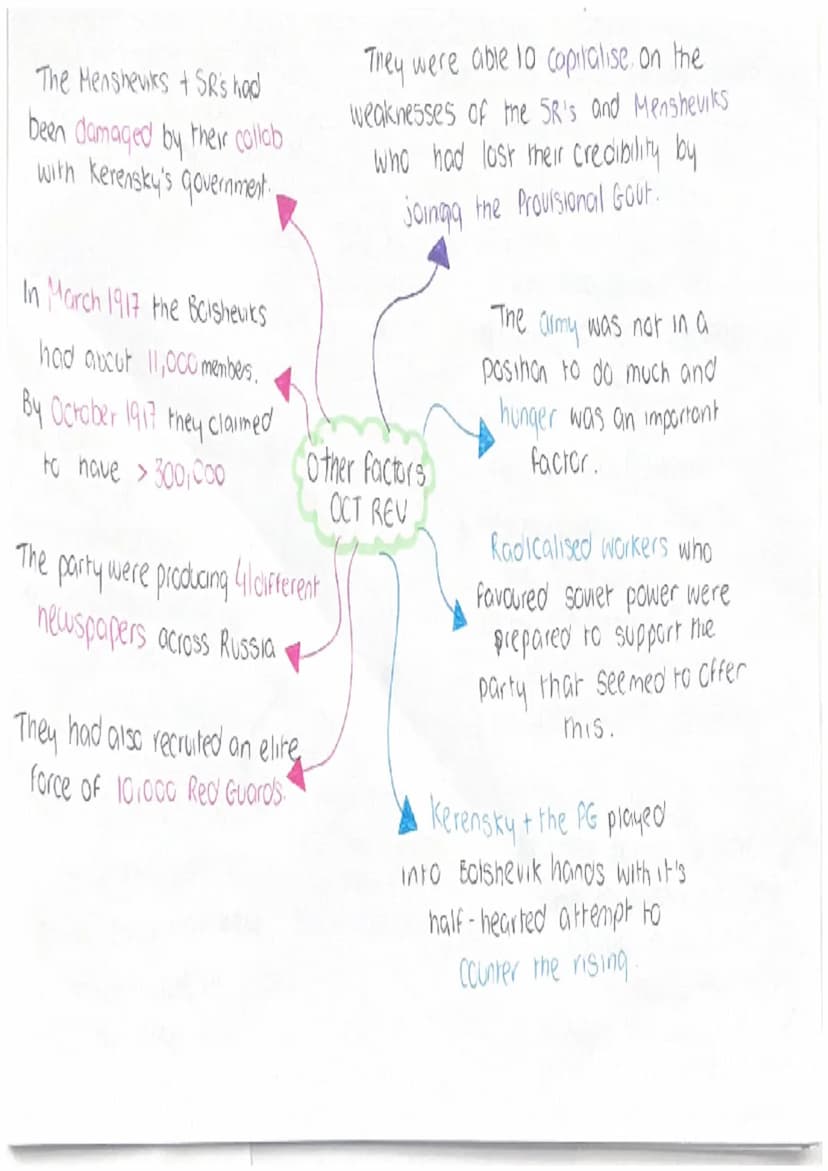 The Mensheviks + SR's had
been damaged by their collab
with Kerensky's government.
They were able to capitalise on the
weaknesses of the SR's and Mensheviks
who had lost their credibility by
joingg the Provisional Govt.
In March 1917 the Bolsheviks
had about 11,000 members.
By October 1917 they claimed
to have > 300,000
The army was not in a
position to do much and
hunger was an important
factor.
Other factors
OCT REV
The party were producing 41 different
newspapers across Russia
Radicalised workers who
favoured soviet power were
prepared to support the
party that seemed to offer
this.
They had also recruited an elite
force of 10,000 Red Guards.
Kerensky + the PG played
into Bolshevik hands with it's
half-hearted attempt to
counter the rising.